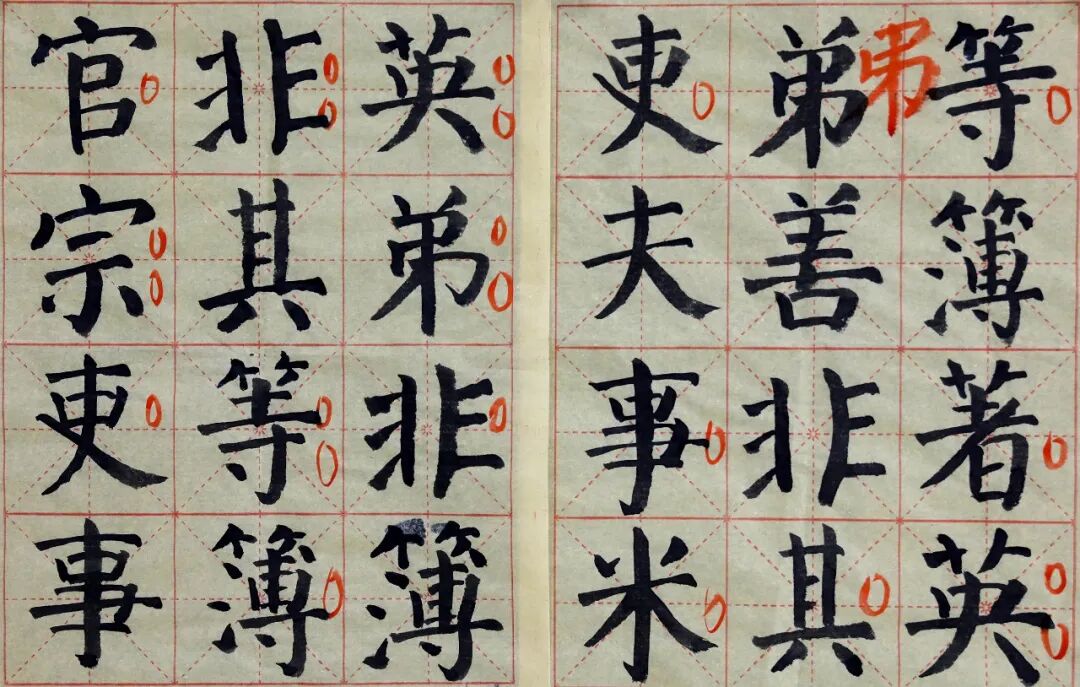 等簿著英
弟善非其
吏夫事米
英弟非簿
非其等簿
官宗吏事